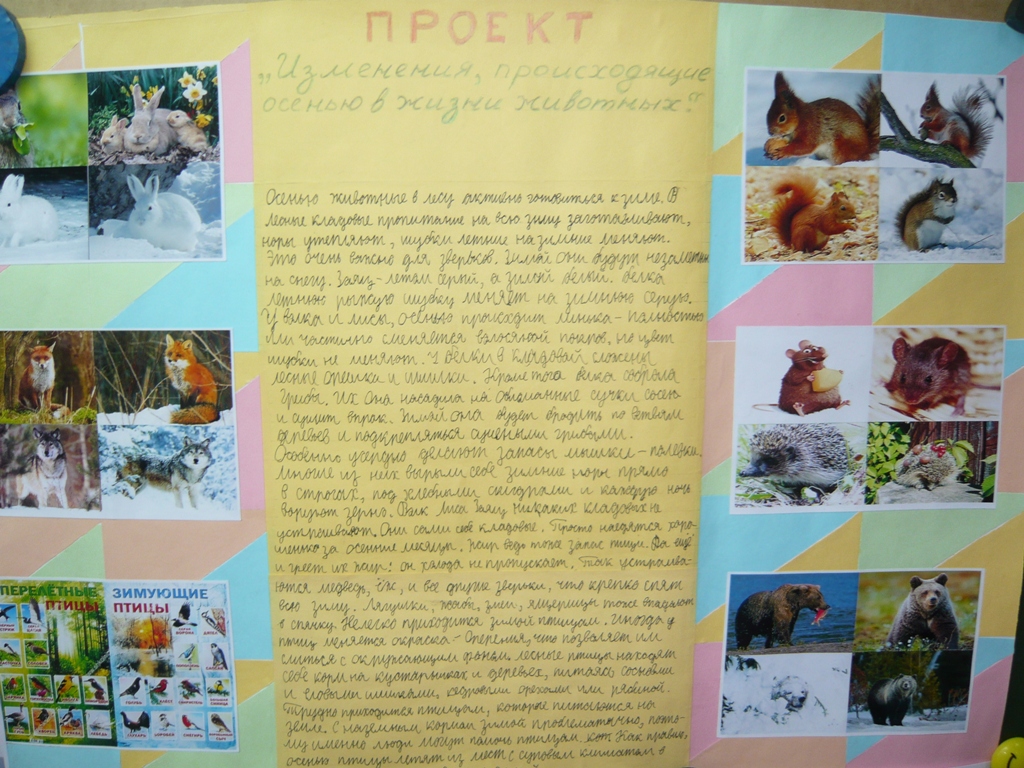 ПРОЕКТ
„Изменения, происходящие
осенью в жизни животных."
Осенью животные в лесу активно готовиться к зиме. В
лесные кладовые пропитание на всю зиму заготавливают,
норы утепляют, шубки летние на зимние меняют.
Это очень важно для зверьков. Зимой они будут незаметны
на снегу. Заяц-летом серый, а зимой белый. Белка
летнюю рыжую шубку меняет на зимнюю серую.
У волка и лисы, осенью происходит линька - полностью
или частично сменяется волосяной покров, но цвет
шубки не меняют. У белки в кладовай сложены
лесные орешки и шишки. Кроме того белка собрала
грибы. Их она насадила на обломанные сучки сосен
и сушит впрок. Зимой она будет бродить по ветвям
деревьев и подкрепляться сушеными грибами.
Особенно усердно делают запасы мышки-полевки.
Многие из них вырыли себе зимние норы прямо
в строгах, под хлебными скирдами и каждую ночь
воруют зерно. Волк Лиса Заяц никаких кладовых не
устраивают. Они сами себе кладовые. Просто наедятся хоро-
шенько за осенние месяцы. Жир ведь тоже запас пищи. Да ещё
и греет их жир: он холода не пропускает. Так устраива-
ются медведь, ёж, и все другие зверьки, что крепко спят
всю зиму. Лягушки, жабы, змеи, ящерицы тоже впадают
в спячку. Нелегко приходится зимой птицам. Иногда у
птиц меняется окраска - оперения, что позволяет им
слиться с окружающим фоном. лесные птицы находят
себе корм на кустарниках и деревьях, питаясь сосновыми
и еловыми шишками, кедровыми орехами или рябиной.
Трудно приходится птицам, которые питаются на
земле. С наземным кормом зимой проблематично, поэто-
му именно люди могут помочь птицам. Как правило,
осенью птицы летят из мест с суровым климатом в
ПЕРЕЛЁТНЫЕ
ПТИЦЫ
ЗИМУЮЩИЕ
ПТИЦЫ
ВОРОНА